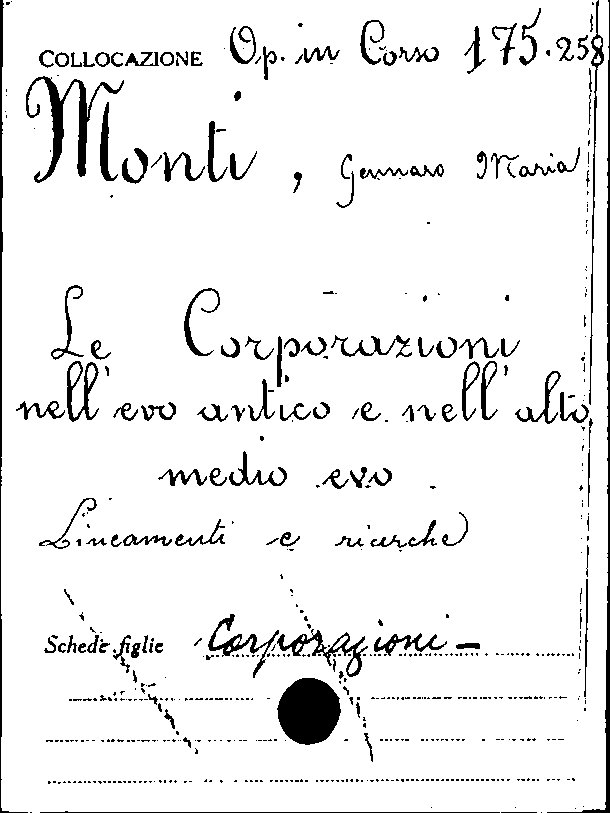 COLLOCAZIONE Op. in Corso 175.258
Monti, Gennaro Maria
Le Corporazioni
nell'evo antico e nell'alto
medio evo
Lineamenti e ricerche
Schede figlie Corporazioni –